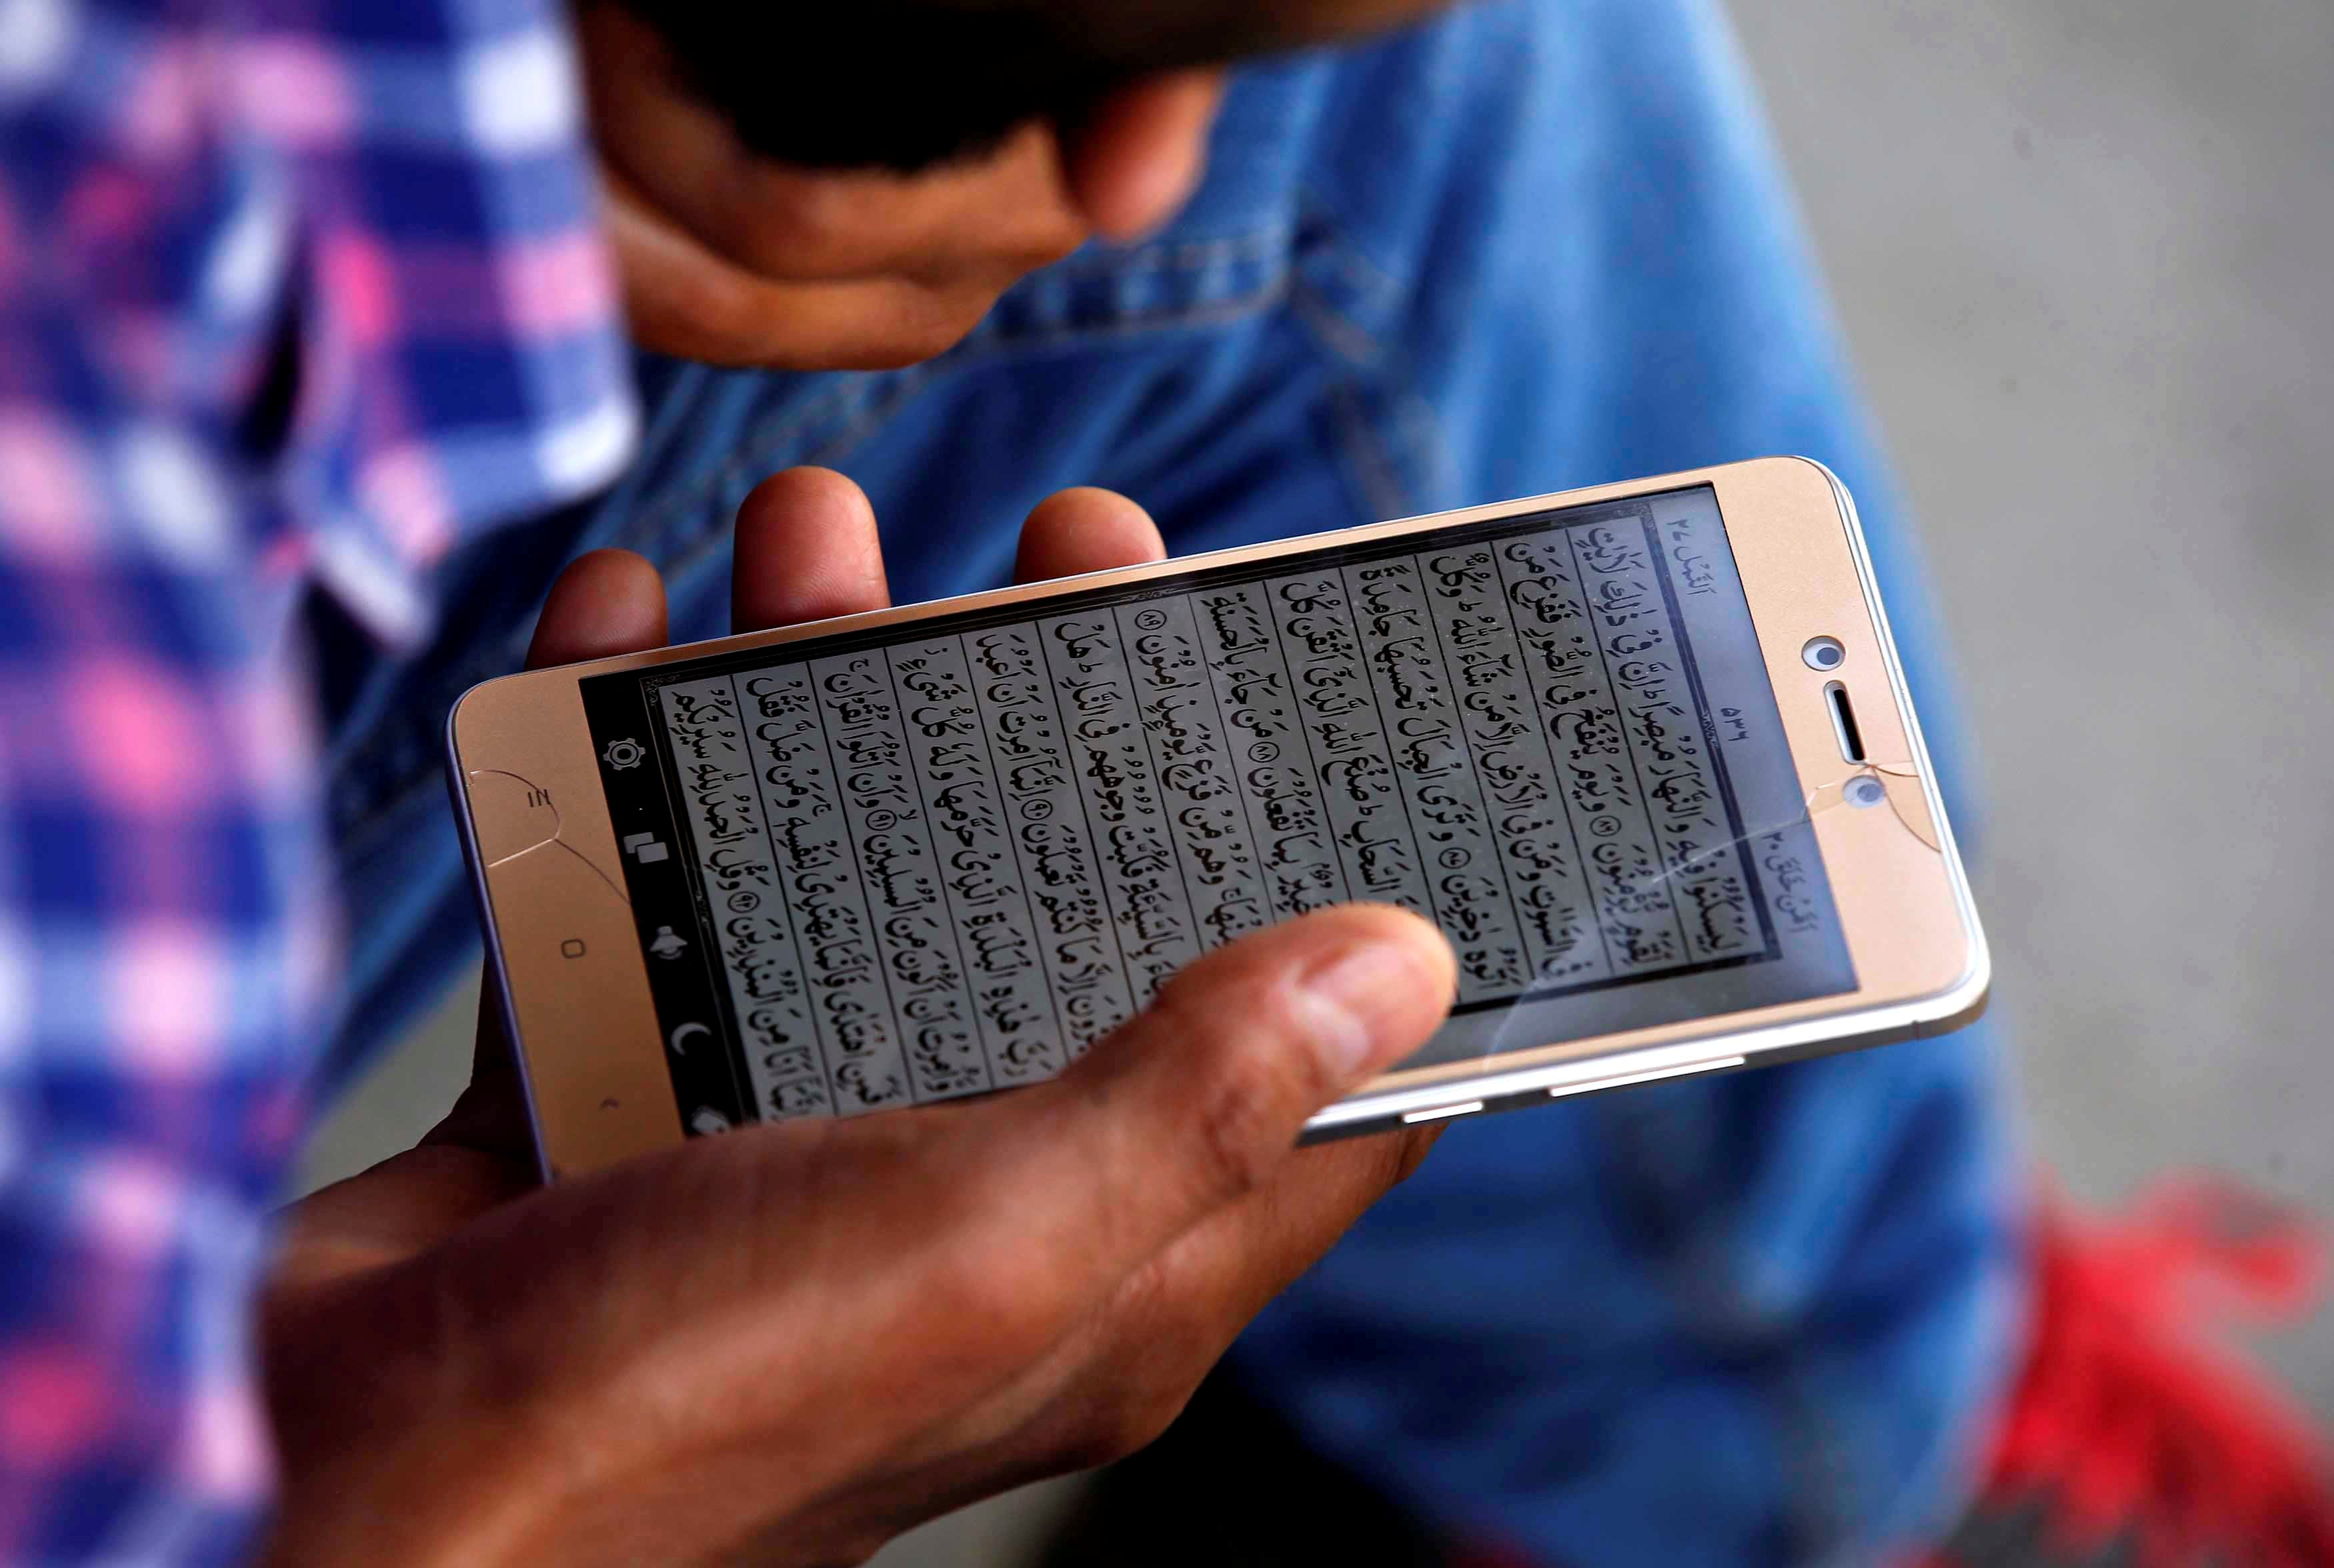 اَمَّنْ خَلَقَ ٢٠ ٥٣٦ اَلنَّمْل ٢٧
لِيَسْكُنُوْا فِيْهِ وَالنَّهَارَ مُبْصِرًا ؕ اِنَّ فِىْ ذٰلِكَ لَاٰيٰتٍ
لِّقَوْمٍ يُّؤْمِنُوْنَ ﴿۸۶﴾ وَيَوْمَ يُنْفَخُ فِى الصُّوْرِ فَفَزِعَ مَنْ
فِى السَّمٰوٰتِ وَمَنْ فِى الْاَرْضِ اِلَّا مَنْ شَآءَ اللّٰهُ ؕ وَكُلٌّ
اَتَوْهُ دٰخِرِيْنَ ﴿۸۷﴾ وَتَرَى الْجِبَالَ تَحْسَبُهَا جَامِدَةً
السَّحَابِ ؕ صُنْعَ اللّٰهِ الَّذِىْۤ اَتْقَنَ كُلَّ
خَبِيْرٌۢ بِمَا تَفْعَلُوْنَ ﴿۸۸﴾ مَنْ جَآءَ بِالْحَسَنَةِ
مِّنْهَا ۚ وَهُمْ مِّنْ فَزَعٍ يَّوْمَئِذٍ اٰمِنُوْنَ ﴿۸۹﴾
بِالسَّيِّئَةِ فَكُبَّتْ وُجُوْهُهُمْ فِى النَّارِ ؕ هَلْ
اِلَّا مَا كُنْتُمْ تَعْمَلُوْنَ ﴿۹۰﴾ اِنَّمَاۤ اُمِرْتُ اَنْ اَعْبُدَ
رَبَّ هٰذِهِ الْبَلْدَةِ الَّذِىْ حَرَّمَهَا وَلَهٗ كُلُّ شَىْءٍ ز
وَّاُمِرْتُ اَنْ اَكُوْنَ مِنَ الْمُسْلِمِيْنَ ﴿۹۱﴾ وَاَنْ اَتْلُوَا الْقُرْاٰنَ ۚ
فَمَنِ اهْتَدٰى فَاِنَّمَا يَهْتَدِىْ لِنَفْسِهٖ ۚ وَمَنْ ضَلَّ فَقُلْ
اِنَّمَاۤ اَنَا مِنَ الْمُنْذِرِيْنَ ﴿۹۲﴾ وَقُلِ الْحَمْدُ لِلّٰهِ سَيُرِيْكُمْ